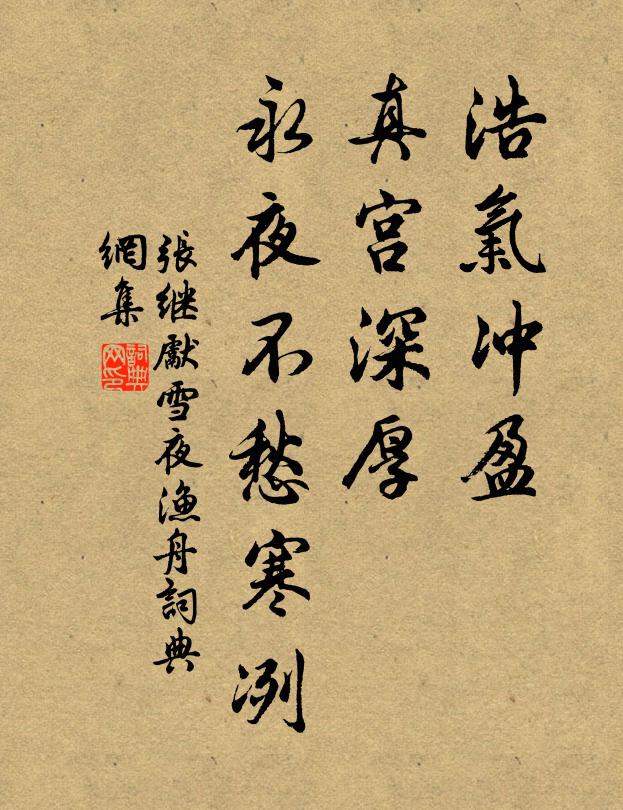 浩氣冲盈
真宫深厚
永夜不愁寒冽
張继獻雪夜漁舟詞典
網集
詞典
网印